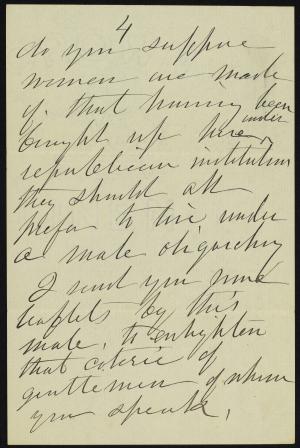 4
do you suppose
women are made
of, that having been
brought up here, under
republican institutions
they should all
prefer to live under
a male oligarchy
I send you some
leaflets by this
male, to enlighten
that coterie of
gentlemen of whom
you speak,